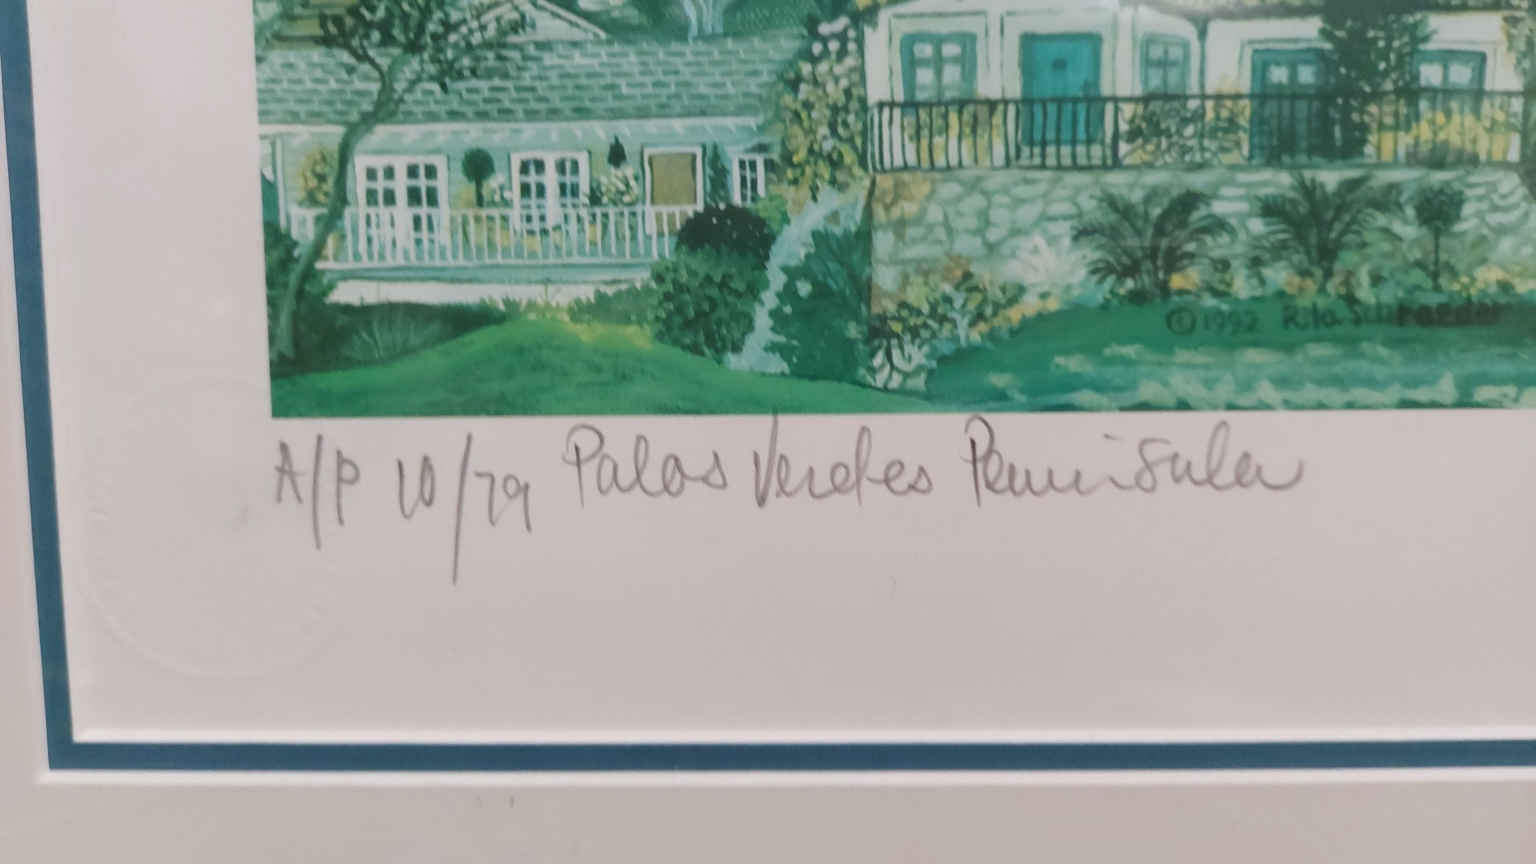 ©1992 Rita Schraeder
A/P 10/79 Palos Verdes Peninsula